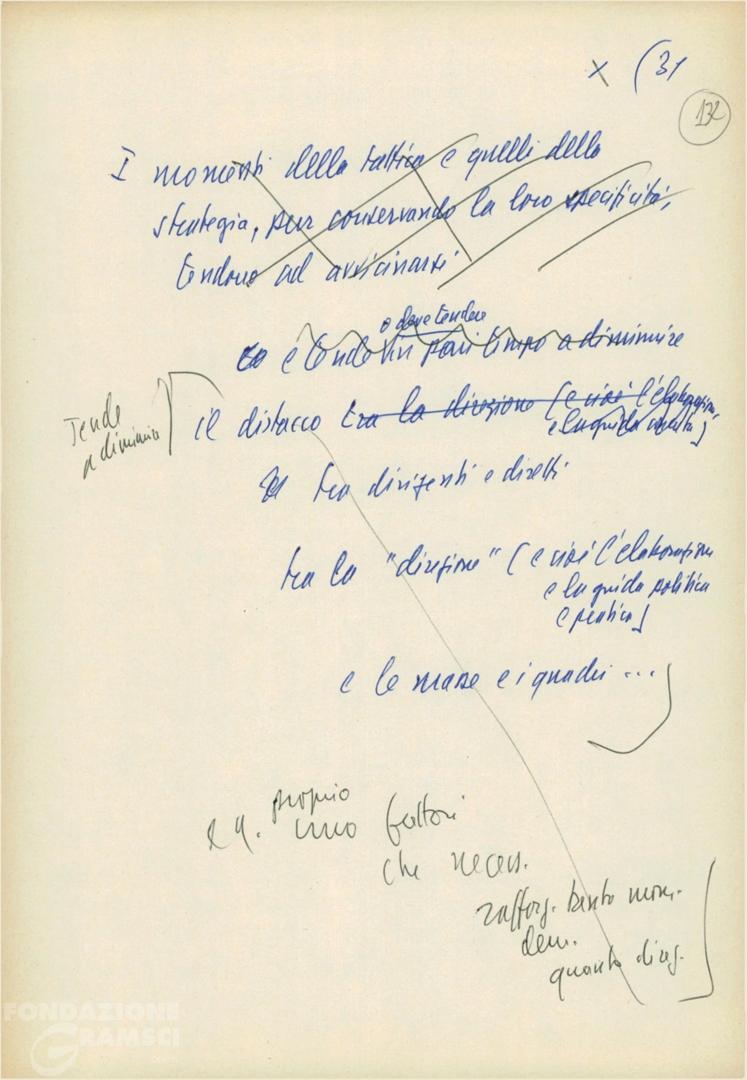 x (31
132
I momenti della tattica e quelli della
strategia, pur conservando la loro specificità,
tendono ad avvicinarsi
o deve tendere
e tende in pari tempo a diminuire
Tende
a diminuire
il distacco tra la direzione (e cioè l'elaborazione
e la guida
tra dirigenti e diretti
tra la "direzione" (e cioè l'elaborazione
e la guida politica
e pratica)
e le masse e i quadri ...
proprio
e q. sono fattori
che necess.
rafforz. tanto mom.
dem.
quanto direz.
FONDAZIONE
GRAMSCI